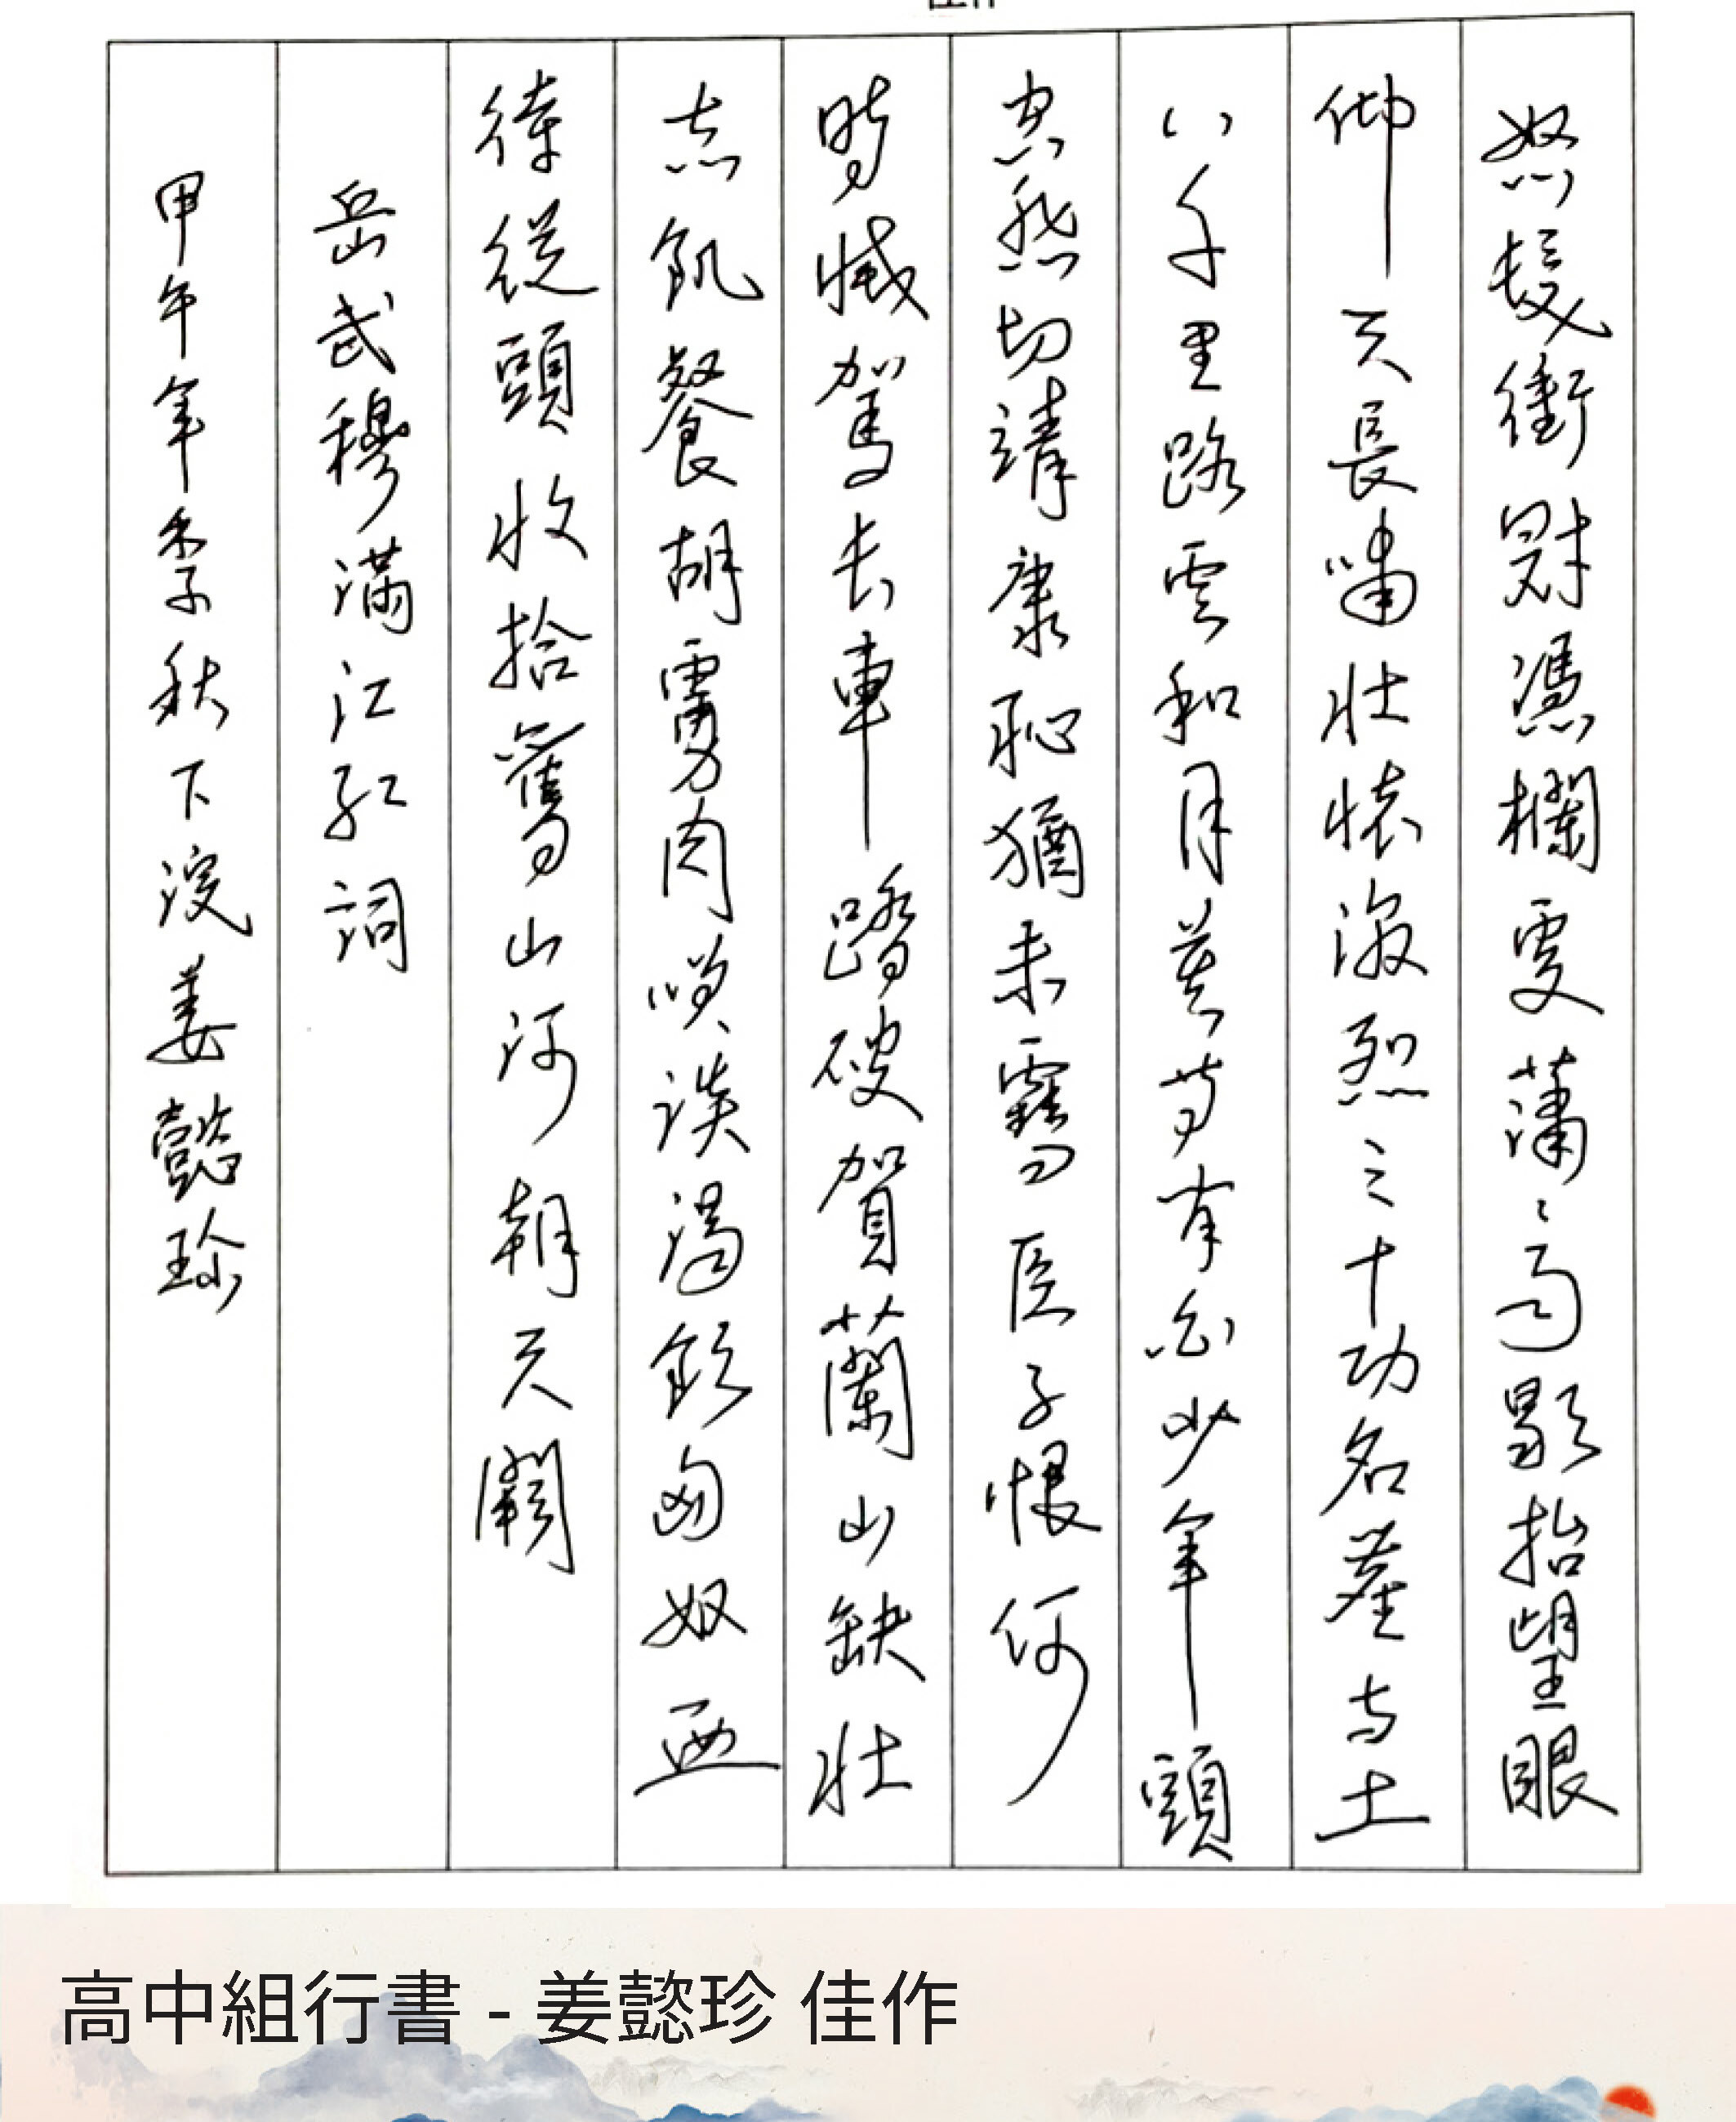 佳作
怒髮衝冠憑欄處瀟〻雨歇抬望眼
仰天長嘯壯懷激烈三十功名塵与土
八千里路雲和月莫等有白少年頭
空悲切靖康恥猶未雪臣子恨何
時滅駕長車踏破賀蘭山缺壯
志飢餐胡虜肉笑談渴飲匈奴血
待從頭收拾舊山河朝天闕
岳武穆滿江紅詞
甲午年季秋下浣姜懿珍
高中組行書 - 姜懿珍 佳作